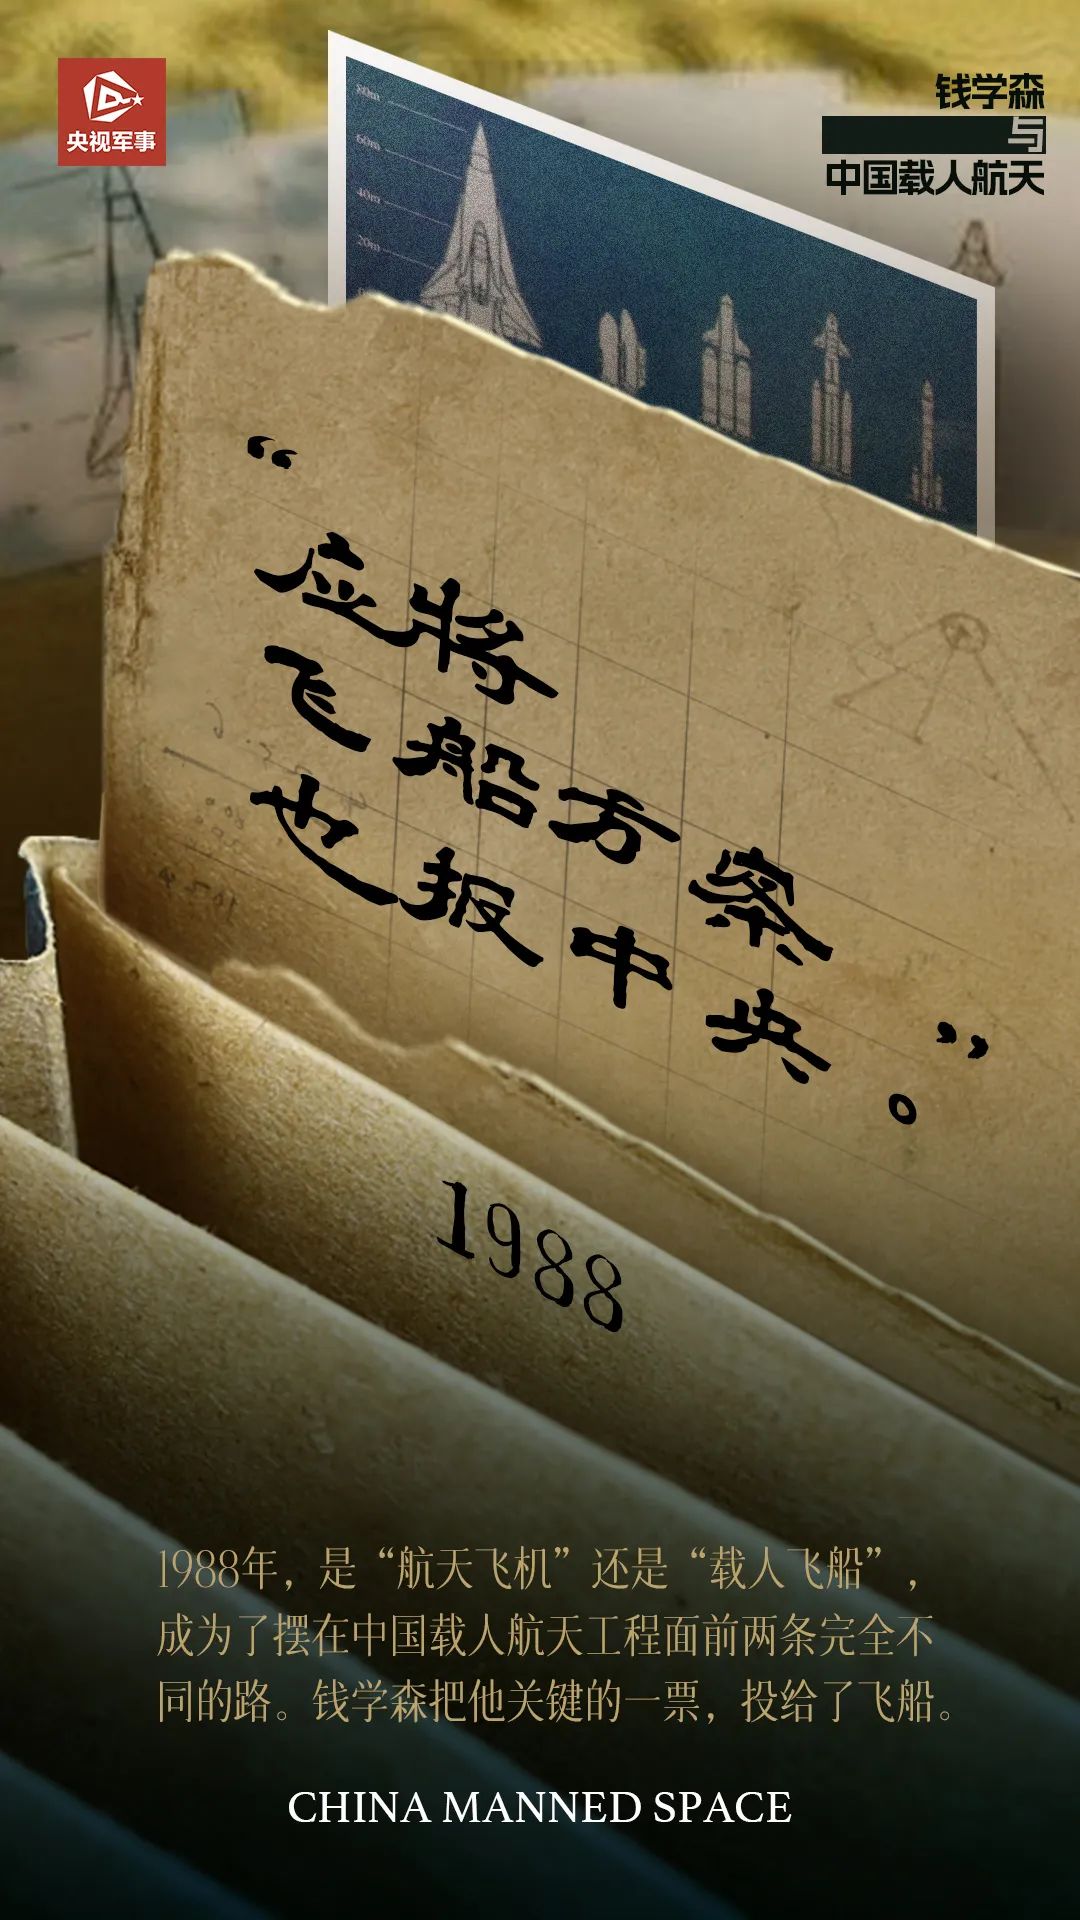 央视军事
钱学森
与
中国载人航天
80m
60m
40m
20m
“
应将
飞船方案
也报中央。”
1988
1988年，是“航天飞机”还是“载人飞船”，
成为了摆在中国载人航天工程面前两条完全不
同的路。钱学森把他关键的一票，投给了飞船。
CHINA MANNED SPACE